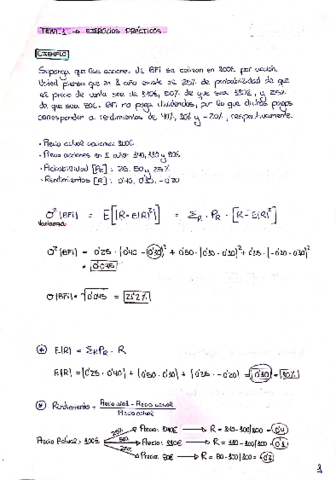 TEMA 1 → EJERCICIOS PRÁCTICOS
EJEMPLO
Suponga que las acciones de BFI se cotizan en 100€ por acción.
Usted piensa que en 1 año existe un 25% de probabilidad de que
el precio de venta sea de 140€, 50% de que sea 110€, y 25%
de que sea 80€. BFI no paga dividendos, por lo que dichos pagos
corresponden a rendimientos de 40%, 10% y -20%, respectivamente.
· Precio actual acciones 100€
· Precio acciones en 1 año: 140, 110 y 80€
· Probabilidad [PR]: 25, 50 y 25%
· Rendimientos [R]: 0'40, 0'10, -0'20
σ² (BFI) = E[(R - E(R))²] = Σ_R · P_R · [R - E(R)]²
Varianza
σ² (BFI) = 0'25 · (0'40 - 0'10)² + 0'50 · (0'10 - 0'10)² + 0'25 · (-0'20 - 0'10)²
= 0'045
σ (BFI) = √0'045 = 21'2%
E(R) = Σ_R P_R · R
E(R) = (0'25 · 0'40) + (0'50 · 0'10) + (0'25 · -0'20) = 0'10 = 10%
Rendimiento =
Precio actual = 100€
25% Precio: 140€ → R = 140 - 100/100 = 0'4
50% Precio: 110€ → R = 110 - 100/100 = 0'1
25% Precio: 80€ → R = 80 - 100/100 =
1